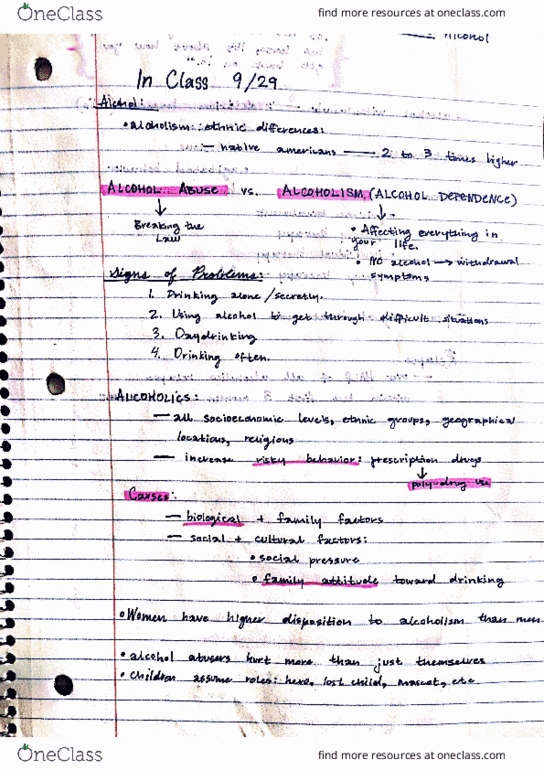 OneClass
find more resources at oneclass.com
Alcohol
In Class 9/29
Alcohol:
• alcoholism: ethnic differences:
— native americans — 2 to 3 times higher
ALCOHOL ABUSE vs. ALCOHOLISM (ALCOHOL DEPENDENCE)
↓ ↓
Breaking the Law
• Affecting everything in your life.
• NO alcohol → withdrawal symptoms
Signs of Problems:
1. Drinking alone/secretly.
2. Using alcohol to get through difficult situations
3. Daydrinking
4. Drinking often.
ALCOHOLICS:
— all socioeconomic levels, ethnic groups, geographical
locations, religious
— increase risky behavior: prescription drugs
↓
poly-drug use
Causes:
— biological + family factors
— social + cultural factors:
• social pressure
• family attitude toward drinking
• Women have higher disposition to alcoholism than men
• alcohol abusers hurt more than just themselves
• children assume roles: hero, lost child, mascot, etc
OneClass
find more resources at oneclass.com